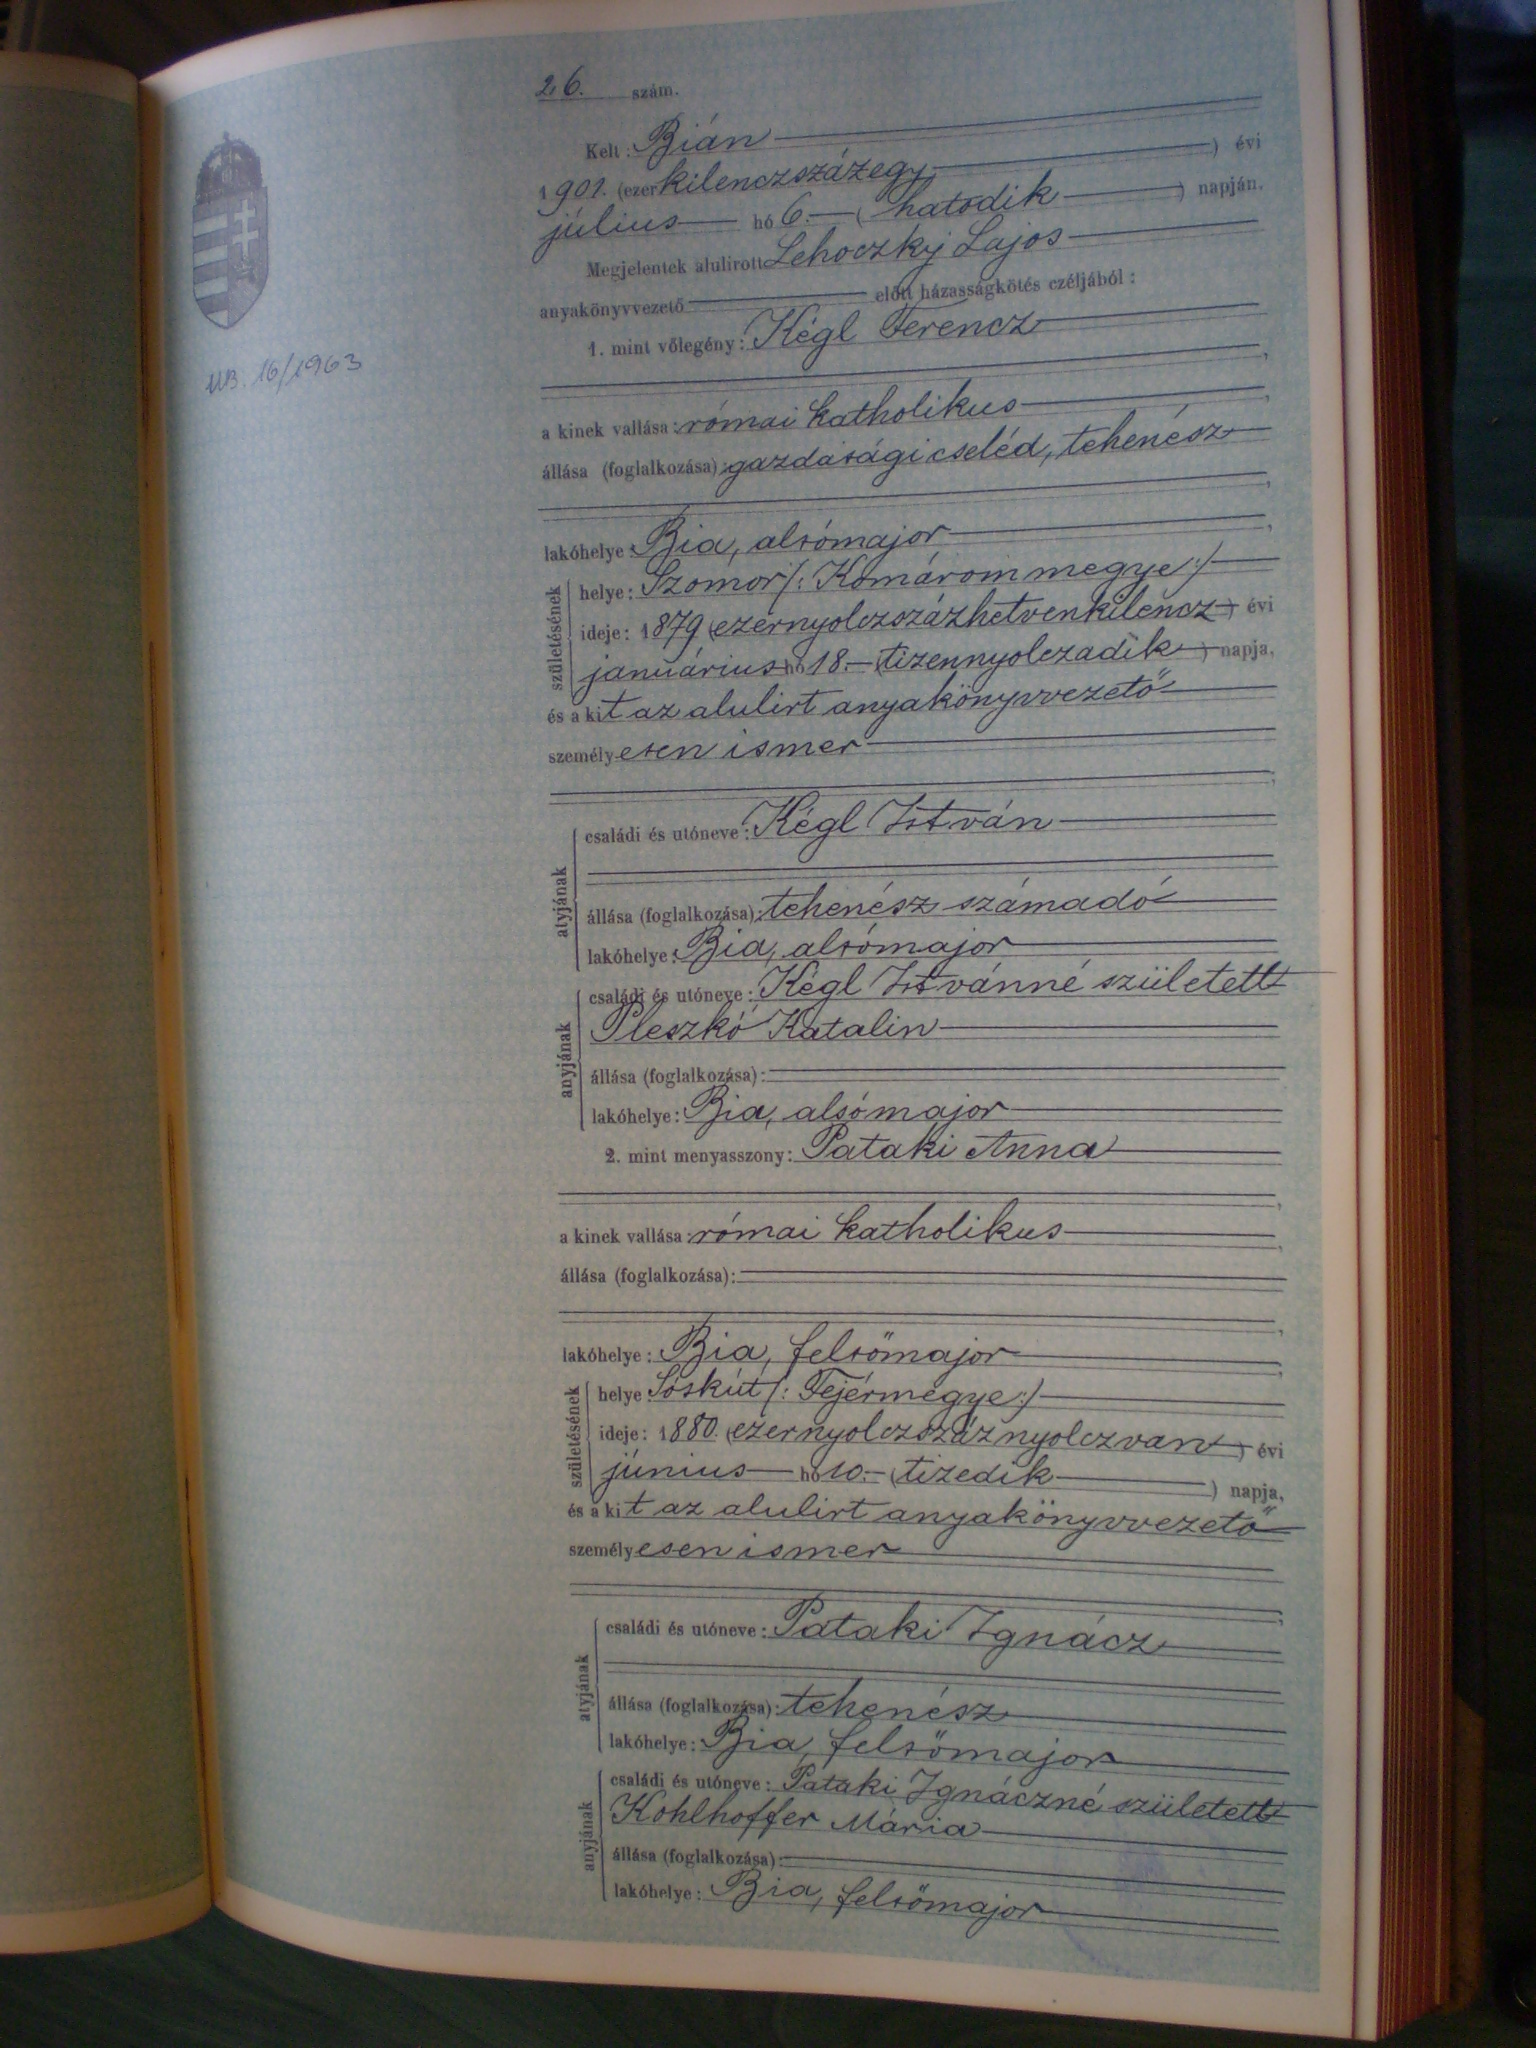 26. szám.
Kelt: Bián
1901. (ezerkilenczszázegy) évi
július hó 6. (hatodik) napján.
Megjelentek alulirott Lehoczky Lajos
anyakönyvvezető előtt házasságkötés czéljából:
1. mint vőlegény: Kégl Ferencz
MB. 16/1963
a kinek vallása: római katholikus
állása (foglalkozása): gazdasági cseléd, tehenész
lakóhelye: Bia, alsómajor
születésének
helye: Szomor /: Komárom megye :/
ideje: 1879 (ezernyolczszázhetvenkilencz) évi
januárius hó 18. (tizennyolczadik) napja,
és a kit az alulirt anyakönyvvezető
személyesen ismer
atyjának
családi és utóneve: Kégl István
állása (foglalkozása): tehenész számadó
lakóhelye: Bia, alsómajor
anyjának
családi és utóneve: Kégl Istvánné született
Pleszkó Katalin
állása (foglalkozása):
lakóhelye: Bia, alsómajor
2. mint menyasszony: Pataki Anna
a kinek vallása: római katholikus
állása (foglalkozása):
lakóhelye: Bia, felsőmajor
születésének
helye: Sóskút /: Fejérmegye :/
ideje: 1880. (ezernyolczszáznyolczvan) évi
június hó 10. (tizedik) napja,
és a kit az alulirt anyakönyvvezető
személyesen ismer
atyjának
családi és utóneve: Pataki Ignácz
állása (foglalkozása): tehenész
lakóhelye: Bia, felsőmajor
anyjának
családi és utóneve: Pataki Ignáczné született
Kohlhoffer Mária
állása (foglalkozása):
lakóhelye: Bia, felsőmajor